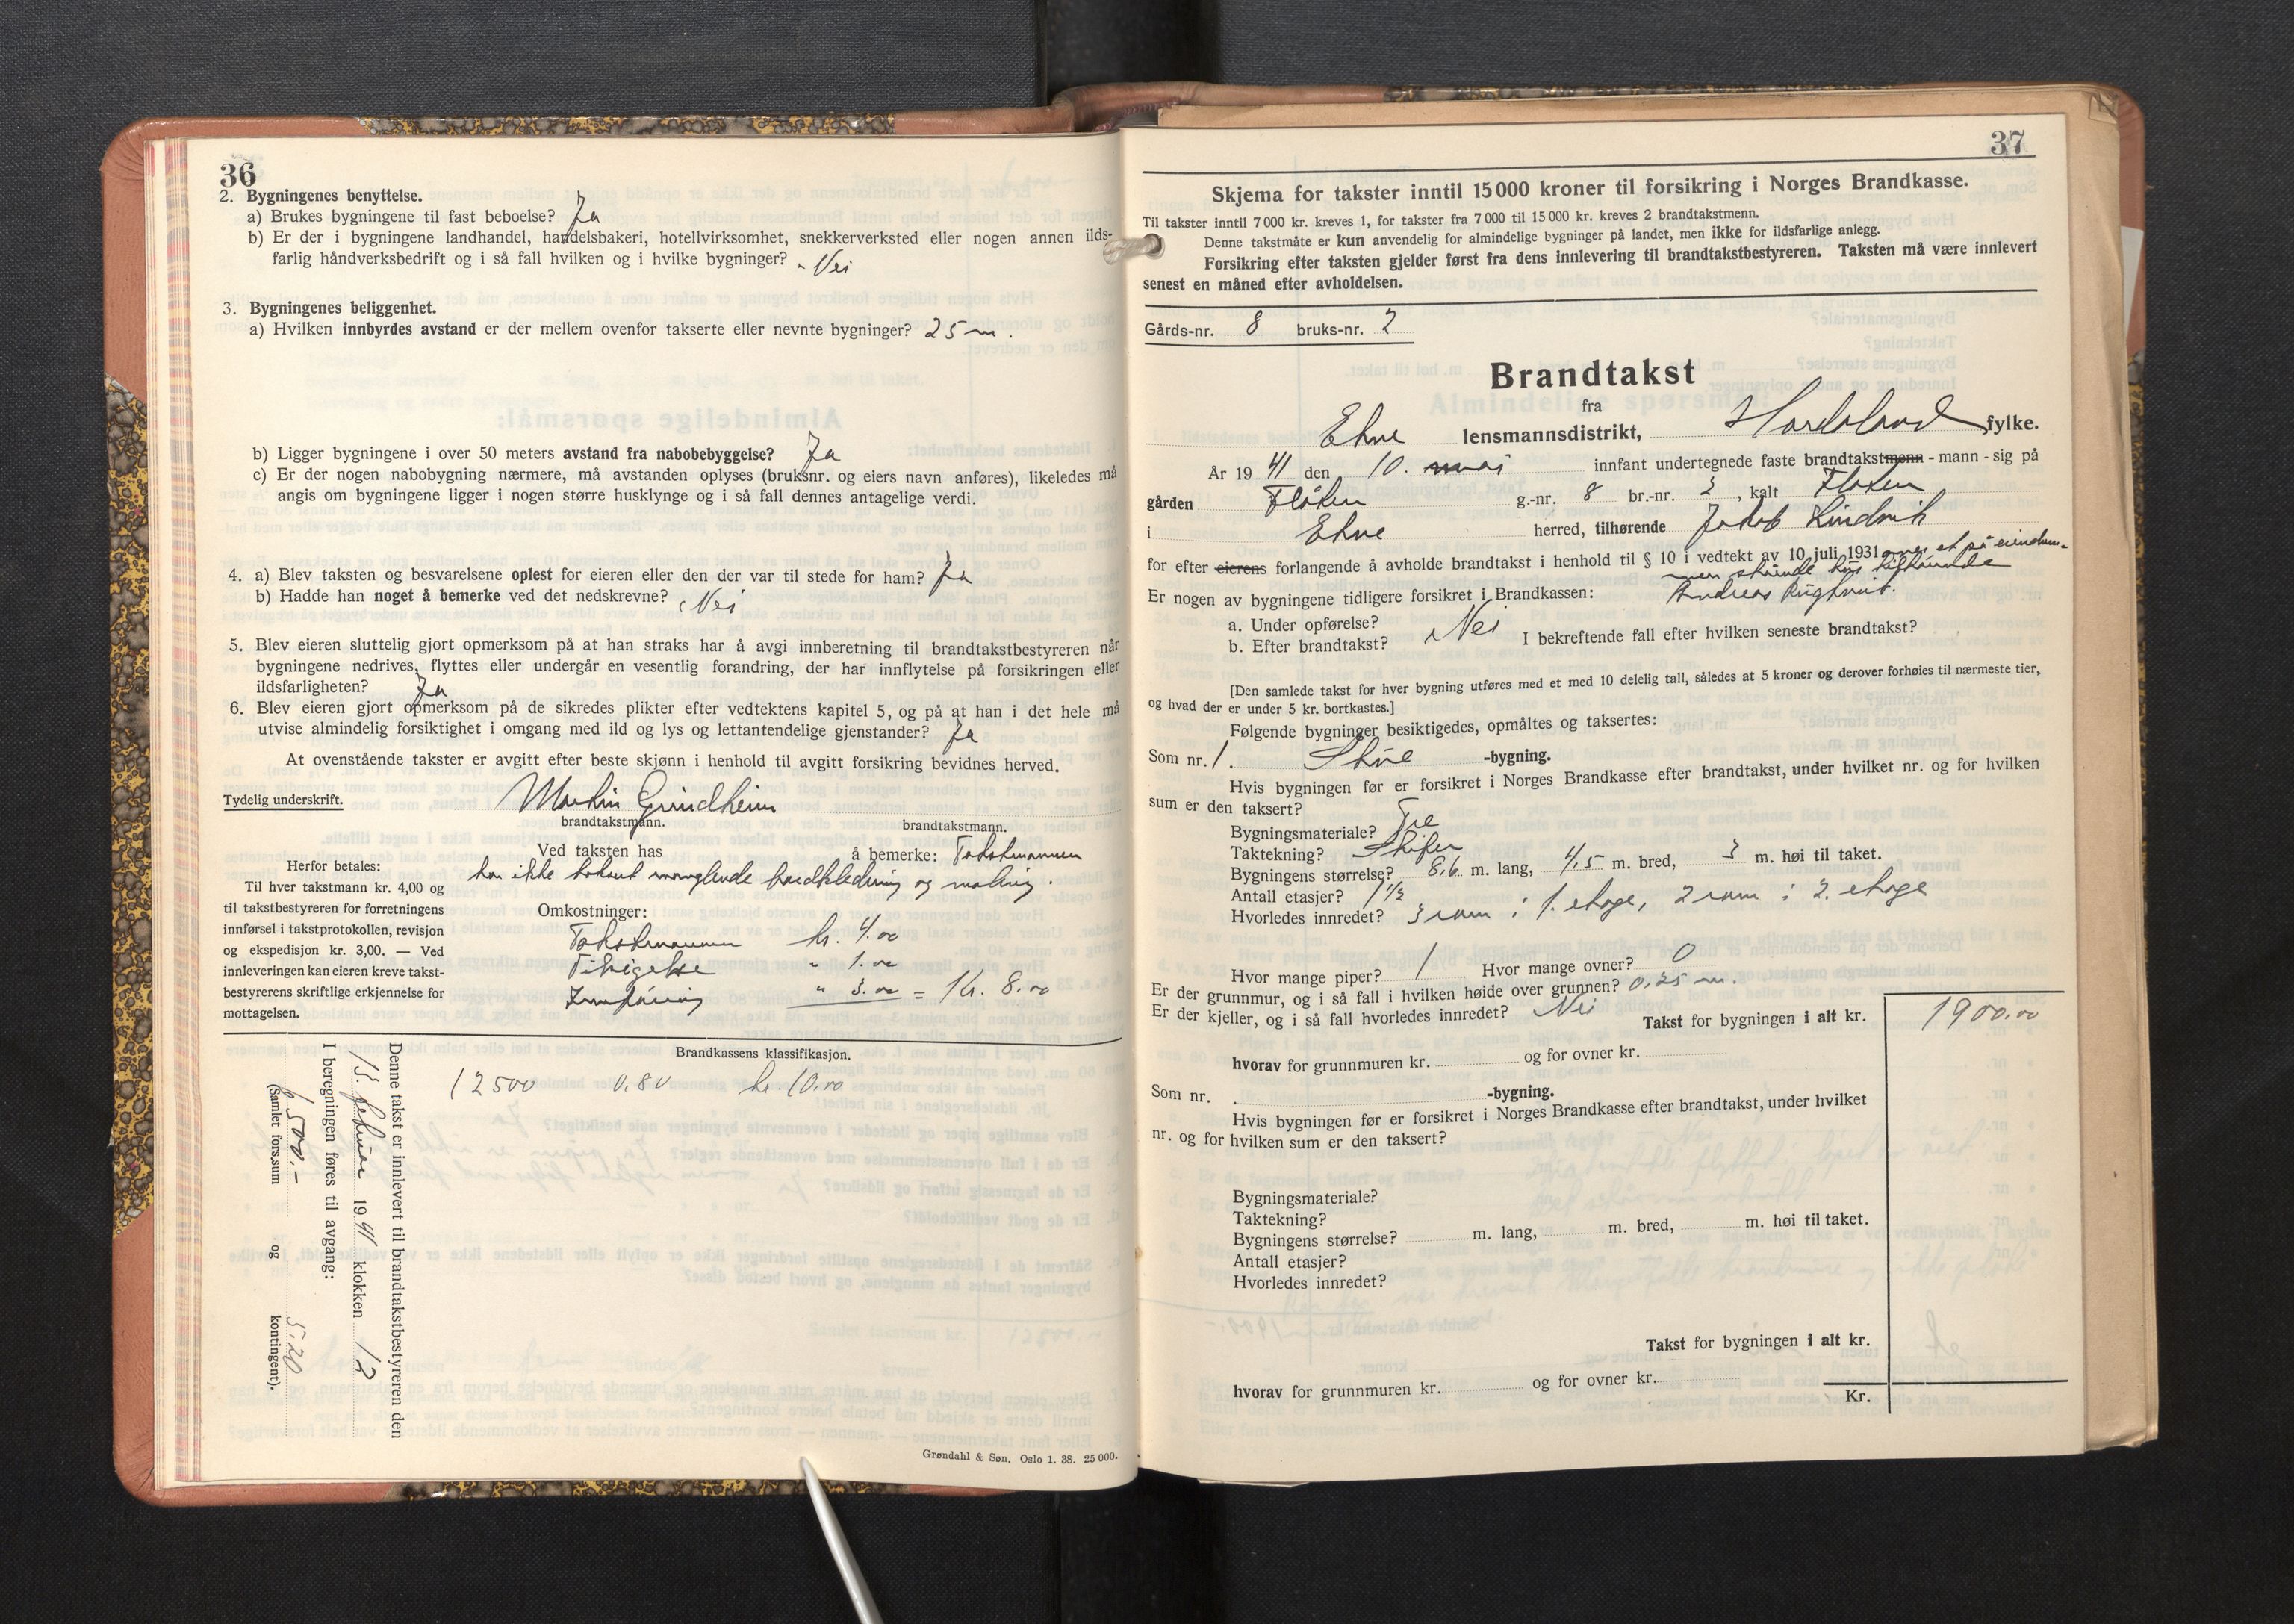 36
2. Bygningenes benyttelse.
a) Brukes bygningene til fast beboelse? Ja
b) Er der i bygningene landhandel, handelsbakeri, hotellvirksomhet, snekkerverksted eller nogen annen ilds-
farlig håndverksbedrift og i så fall hvilken og i hvilke bygninger? Nei
3. Bygningenes beliggenhet.
a) Hvilken innbyrdes avstand er der mellem ovenfor takserte eller nevnte bygninger? 25 m.
b) Ligger bygningene i over 50 meters avstand fra nabobebyggelse? Ja
c) Er der nogen nabobygning nærmere, må avstanden oplyses (bruksnr. og eiers navn anføres), likeledes må
angis om bygningene ligger i nogen større husklynge og i så fall dennes antagelige verdi.
4. a) Blev taksten og besvarelsene oplest for eieren eller den der var til stede for ham? Ja
b) Hadde han noget å bemerke ved det nedskrevne? Nei
5. Blev eieren sluttelig gjort opmerksom på at han straks har å avgi innberetning til brandtakstbestyreren når
bygningene nedrives, flyttes eller undergår en vesentlig forandring, der har innflytelse på forsikringen eller
ildsfarligheten? Ja
6. Blev eieren gjort opmerksom på de sikredes plikter efter vedtektens kapitel 5, og på at han i det hele må
utvise almindelig forsiktighet i omgang med ild og lys og lettantendelige gjenstander? Ja
At ovenstående takster er avgitt efter beste skjønn i henhold til avgitt forsikring bevidnes herved.
Tydelig underskrift. Martin Grindheim
brandtakstmann. brandtakstmann.
Ved taksten has å bemerke: Takstmannen
har ikke takseret manglende bordkledning og maling.
Herfor betales:
Til hver takstmann kr. 4,00 og
til takstbestyreren for forretningens
innførsel i takstprotokollen, revisjon
og ekspedisjon kr. 3,00. — Ved
innleveringen kan eieren kreve takst-
bestyrerens skriftlige erkjennelse for
mottagelsen.
Omkostninger:
Takstmannen kr. 4.00
" 1.00
Innføring " 3.00 = Kr. 8.00
Brandkassens klassifikasjon.
12500 0.80 kr. 10.00
Denne takst er innlevert til brandtakstbestyreren den
15. februar 1941 klokken 12
I beregningen føres til avgang:
500.- og 5.20
(Samlet fors.sum kontingent).
Grøndahl & Søn. Oslo 1. 38. 25 000.
37
Skjema for takster inntil 15 000 kroner til forsikring i Norges Brandkasse.
Til takster inntil 7 000 kr. kreves 1, for takster fra 7 000 til 15 000 kr. kreves 2 brandtakstmenn.
Denne takstmåte er kun anvendelig for almindelige bygninger på landet, men ikke for ildsfarlige anlegg.
Forsikring efter taksten gjelder først fra dens innlevering til brandtakstbestyreren. Taksten må være innlevert
senest en måned efter avholdelsen.
Gårds-nr. 8 bruks-nr. 2
Brandtakst
fra
Etne lensmannsdistrikt, Hordaland fylke.
År 1941 den 10. mai innfant undertegnede faste brandtakstmenn - mann - sig på
gården Fløten g.-nr. 8 br.-nr. 2, kalt Fløten
i Etne herred, tilhørende Jakob Lindvik
for efter eierens forlangende å avholde brandtakst i henhold til § 10 i vedtekt av 10. juli 1931 over et på eiendom-
men stående hus tilhørende
Er nogen av bygningene tidligere forsikret i Brandkassen: Andreas
a. Under opførelse?
b. Efter brandtakst? Nei I bekreftende fall efter hvilken seneste brandtakst?
[Den samlede takst for hver bygning utføres med et med 10 delelig tall, således at 5 kroner og derover forhøies til nærmeste tier,
og hvad der er under 5 kr. bortkastes.]
Følgende bygninger besiktigedes, opmåltes og taksertes:
Som nr. 1. Stue -bygning.
Hvis bygningen før er forsikret i Norges Brandkasse efter brandtakst, under hvilket nr. og for hvilken
sum er den taksert?
Bygningsmateriale? Tre
Taktekning? Skifer
Bygningens størrelse? 8,6 m. lang, 4,5 m. bred, 3 m. høi til taket.
Antall etasjer? 1½
Hvorledes innredet? 3 rom i 1. etage, 2 rom i 2. etage
Hvor mange piper? 1 Hvor mange ovner? 0
Er der grunnmur, og i så fall i hvilken høide over grunnen? 0,25 m.
Er der kjeller, og i så fall hvorledes innredet? Nei
Takst for bygningen i alt kr. 1900.00
hvorav for grunnmuren kr. og for ovner kr.
Som nr. . -bygning.
Hvis bygningen før er forsikret i Norges Brandkasse efter brandtakst, under hvilket
nr. og for hvilken sum er den taksert?
Bygningsmateriale?
Taktekning?
Bygningens størrelse? m. lang, m. bred, m. høi til taket.
Antall etasjer?
Hvorledes innredet?
Takst for bygningen i alt kr.
hvorav for grunnmuren kr. og for ovner kr.
Kr.